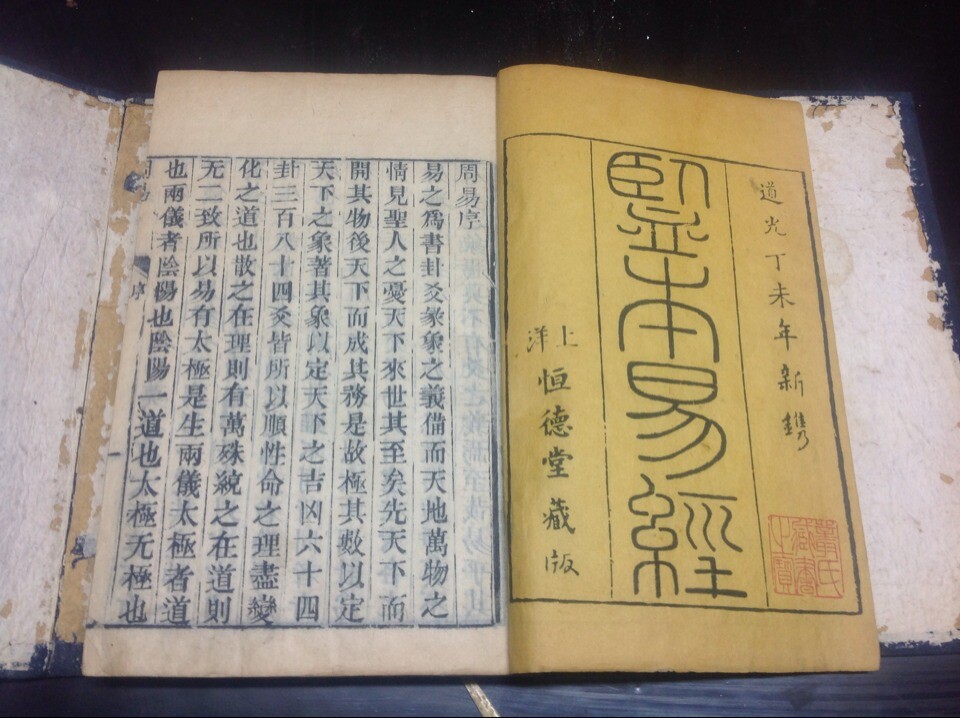 道光丁未年新鐫
監本易經
上洋
恒德堂藏版
周易序
易之爲書卦爻彖象之義備而天地萬物之
情見聖人之憂天下來世其至矣先天下而
開其物後天下而成其務是故極其數以定
天下之象著其象以定天下之吉凶六十四
卦三百八十四爻皆所以順性命之理盡變
化之道也散之在理則有萬殊統之在道則
无二致所以易有太極是生兩儀太極者道
也兩儀者陰陽也陰陽一道也太極无極也
周易
序